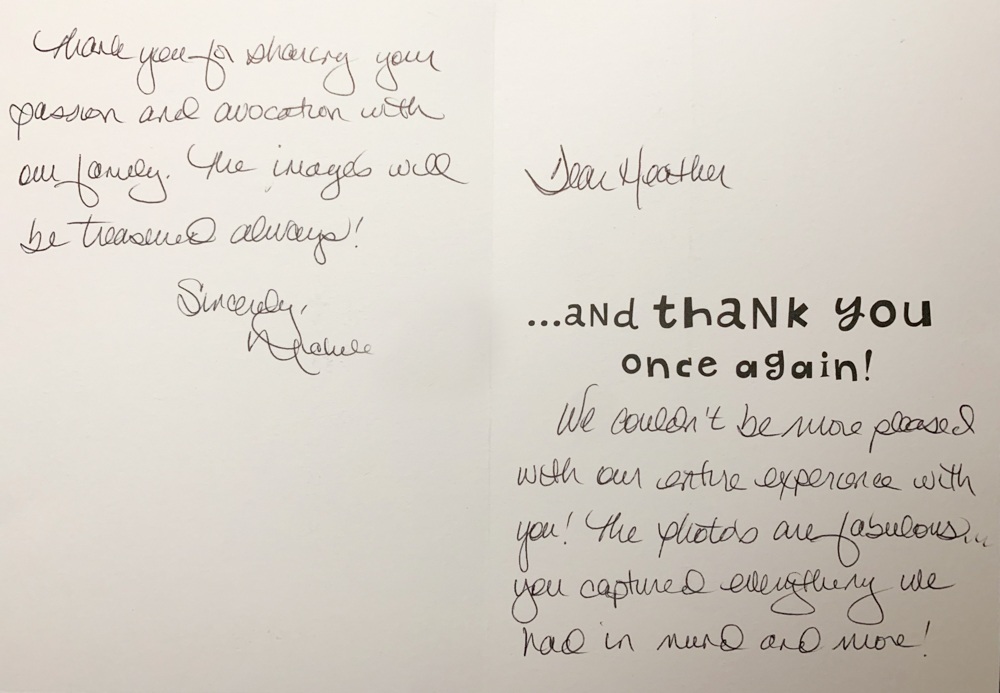 Thank you for sharing your
passion and avocation with
our family. The images will
be treasured always!
Sincerely,
Michele
Dear Heather
...and thank you
once again!
We couldn't be more pleased
with our entire experience with
you! The photos are fabulous...
you captured everything we
had in mind and more!